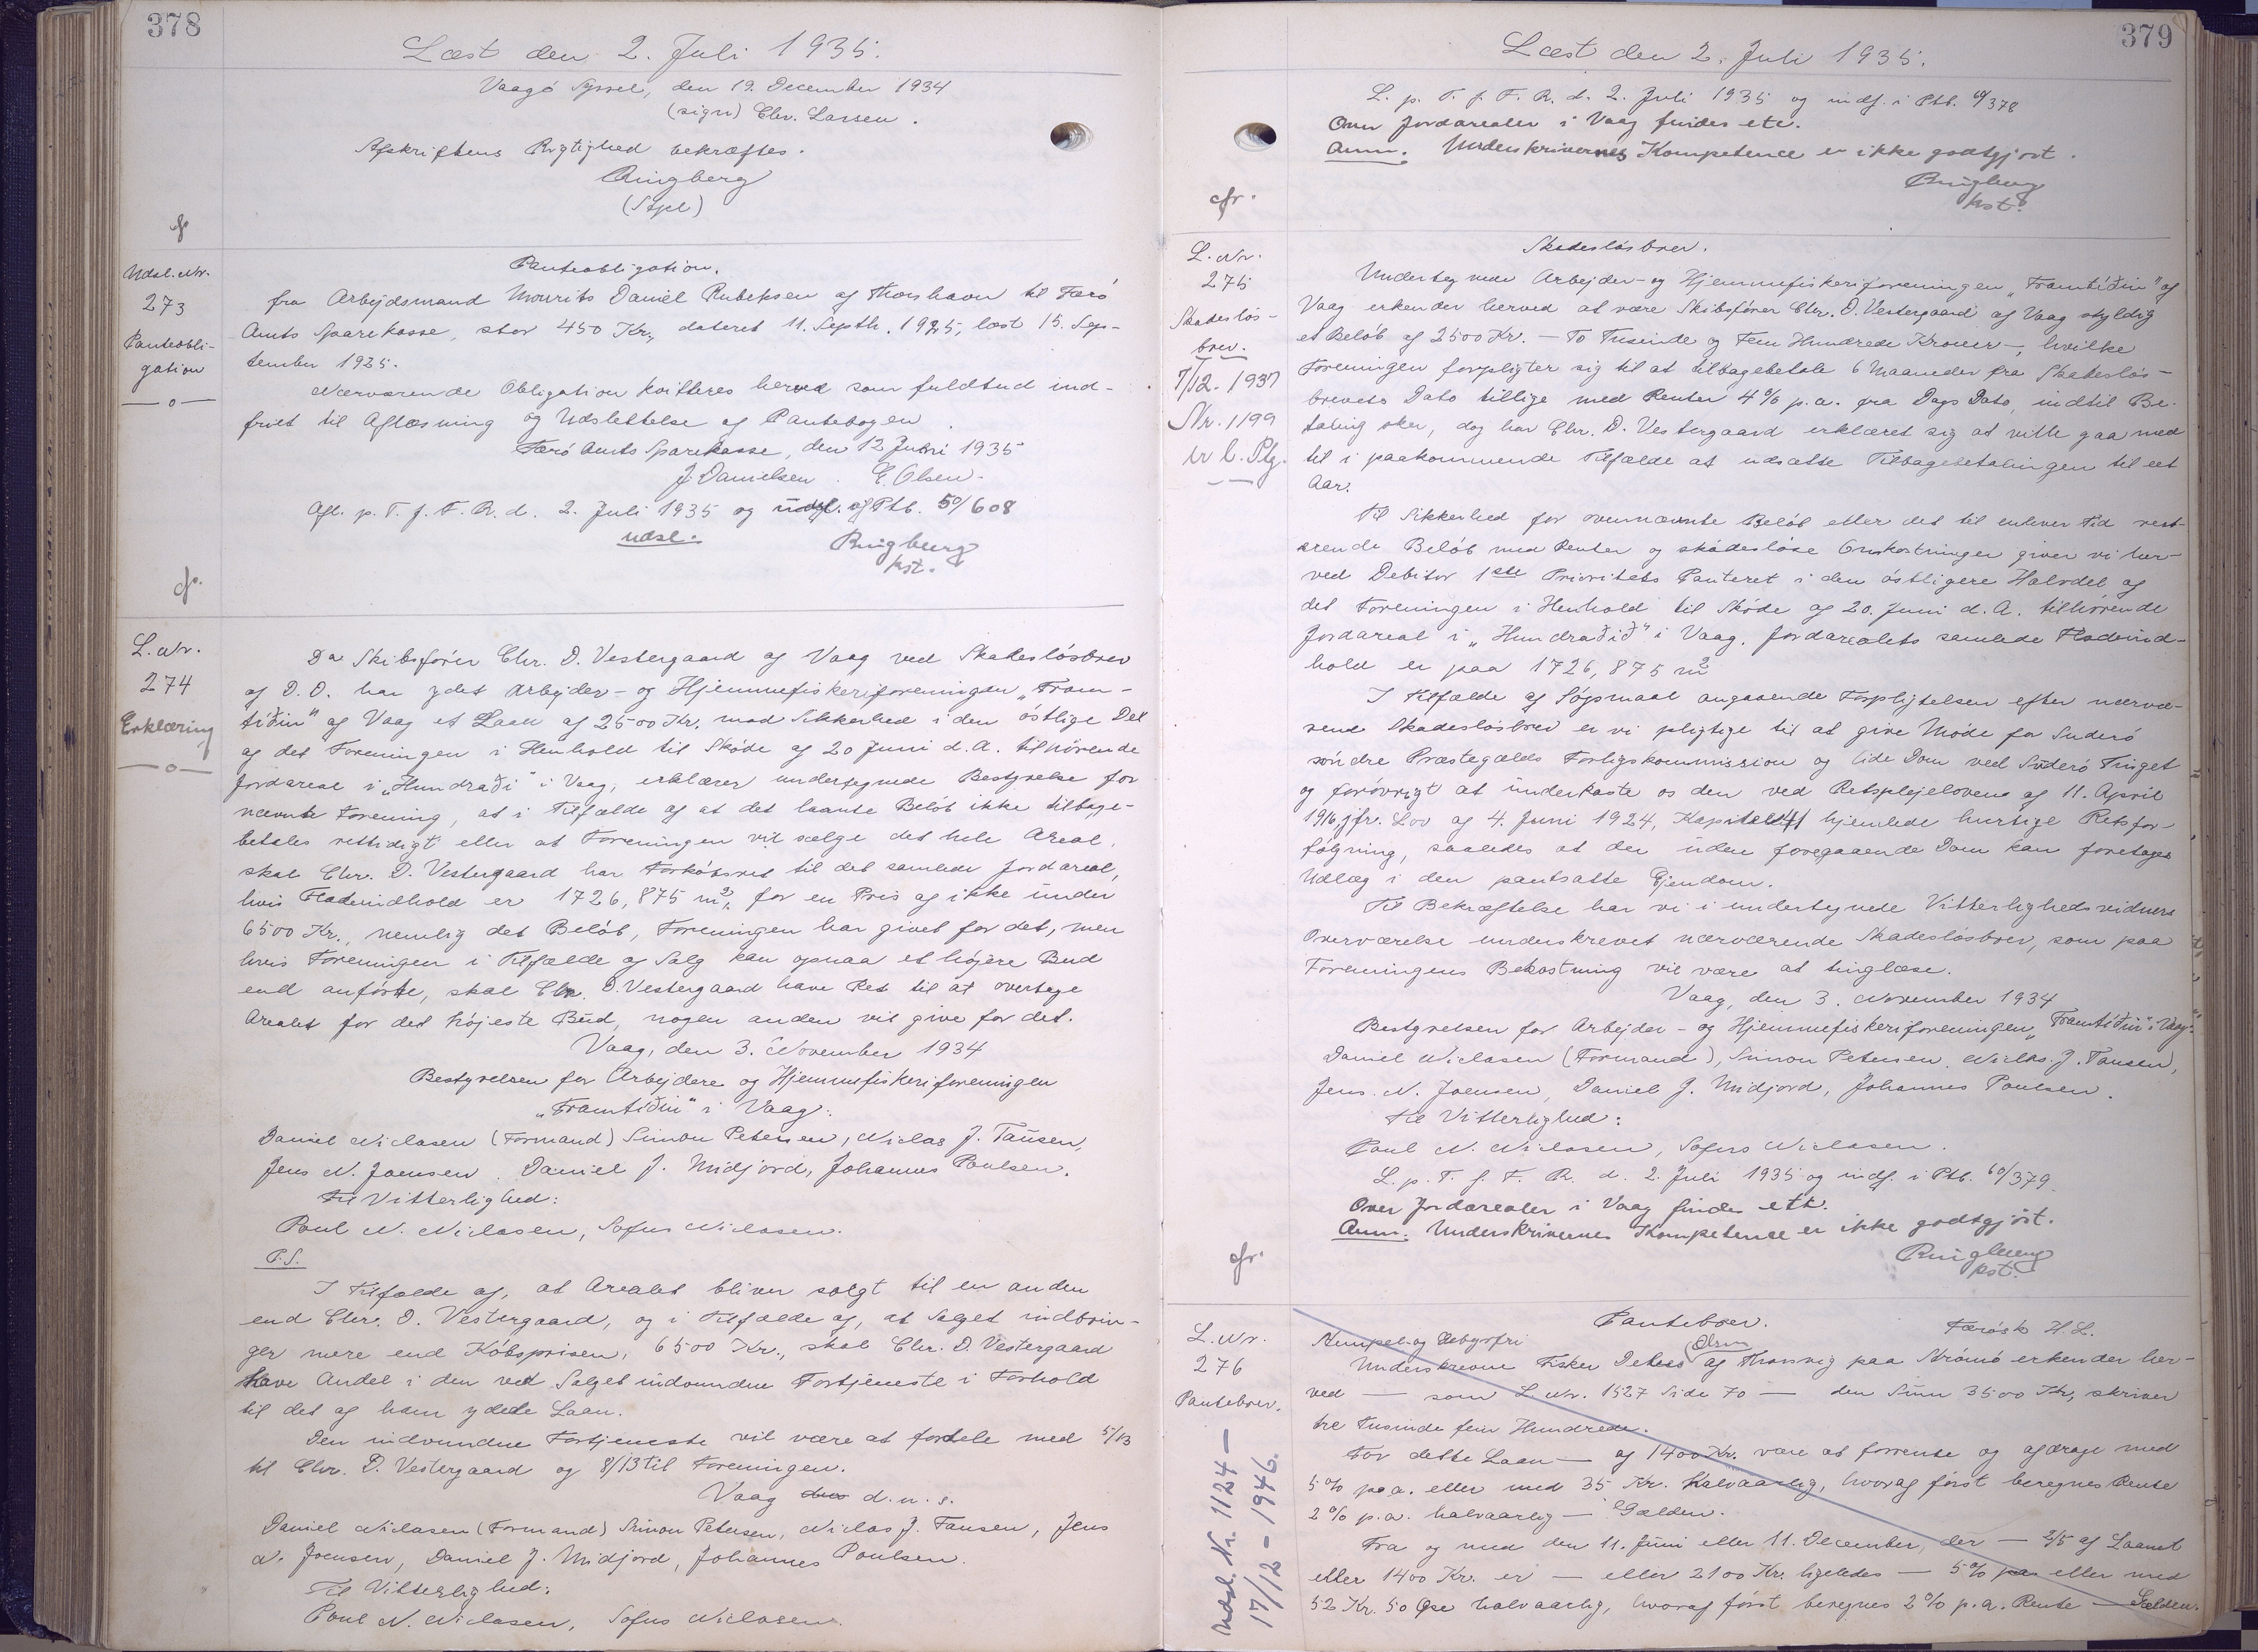 378
Læst den 2. Juli 1935.
Vaagö Syssel, den 19. December 1934
(sign) Chr. Larsen.
Afskriftens Rigtighed bekræftes.
Ringberg
(Stpl)
cfr.
Udsl. Nr.
273
Panteobli-
gation
—o—
Panteobligation.
fra Arbejdsmand Mourits Daniel Rubeksen af Thorshavn til Færö
Amts Sparekasse, stor 450 Kr., dateret 11. Septb. 1925, læst 15. Sep-
tember 1925.
Nærværende Obligation kvitteres herved som fuldtud ind-
friet til Aflæsning og Udslettelse af Pantebogen.
Færö Amts Sparekasse, den 12 Juni 1935
J. Danielsen. E. Olsen.
Afl. p. T. f. F. R. d. 2. Juli 1935 og udsl. af Ptb. 50/608
udsl.
Ringberg
kst.
cfr.
L. Nr.
274
Erklæring
—o—
Da Skibsförer Chr. D. Vestergaard af Vaag ved Skadeslösbrev
af D. D. har ydet Arbejder- og Hjemmefiskeriforeningen „Fram-
tíðin" af Vaag et Laan af 2500 Kr. mod Sikkerhed i den östlige Del
af det Foreningen i Henhold til Sköde af 20 Juni d. A. tilhörende
Jordareal i „Hundraði" i Vaag, erklærer undertegnede Bestyrelse for
nævnte Forening, at i Tilfælde af at det laante Belöb ikke tilbage-
betales rettidigt eller at Foreningen vil sælge det hele Areal,
skal Chr. D. Vestergaard har Forköbsret til det samlede Jordareal,
hvis Fladeindhold er 1726,875 m², for en Pris af ikke under
6500 Kr., nemlig det Belöb, Foreningen har givet for det, men
hvis Foreningen i Tilfælde af Salg kan opnaa et höjere Bud
end anförte, skal Chr. D. Vestergaard have Ret til at overtage
Arealet for det höjeste Bud, nogen anden vil give for det.
Vaag, den 3. November 1934
Bestyrelsen for Arbejdere og Hjemmefiskeriforeningen
„Framtíðin" i Vaag:
Daniel Niclasen (Formand) Simon Petersen, Niclas J. Tausen,
Jens N. Joensen. Daniel J. Midjord, Johannes Poulsen.
Til Vitterlighed:
Poul N. Niclasen, Sofus Niclasen.
P.S.
I Tilfælde af, at Arealet bliver solgt til en anden
end Chr. D. Vestergaard, og i Tilfælde af, at Salget indbrin-
ger mere end Köbsprisen, 6500 Kr., skal Chr. D. Vestergaard
have Andel i den ved Salget indvundne Fortjeneste i Forhold
til det af ham ydede Laan.
Den indvundne Fortjeneste vil være at fordele med 5/13
til Chr. D. Vestergaard og 8/13 til Foreningen.
Vaag den d. u. s.
Daniel Niclasen (Formand) Simon Petersen, Niclas J. Tausen, Jens
N. Joensen, Daniel J. Midjord, Johannes Poulsen.
Til Vitterlighed:
Poul N. Niclasen, Sofus Niclasen.
379
Læst den 2. Juli 1935.
L. p. T. f. F. R. d. 2. Juli 1935 og indf. i Ptb. 60/378
Over Jordarealer i Vaag findes etc.
Anm. Underskrivernes Kompetence er ikke godtgjort.
Ringberg
kst.
cfr.
L. Nr.
275
Skadeslös-
brev.
7/12-1937
Nr. 1199
Skadeslösbrev.
Undertegnede Arbejder- og Hjemmefiskeriforeningen „Framtíðin" af
Vaag erkender herved at være Skibsförer Chr. D. Vestergaard af Vaag skyldig
et Belöb af 2500 Kr. — To Tusinde og Fem Hundrede Kroner —, hvilke
Foreningen forpligter sig til at tilbagebetale 6 Maaneder fra Skadeslös-
brevets Dato tillige med Renter 4% p.a. fra Dags Dato, indtil Be-
taling sker, dog har Chr. D. Vestergaard erklæret sig at ville gaa med
til i paakommende Tilfælde at udsætte Tilbagebetalingen til eet
Aar.
Til Sikkerhed for ovennævnte Belöb eller det til enhver Tid rest-
erende Belöb med Renter og skadeslöse Omkostninger giver vi her-
ved Debitor 1ste Prioritets Panteret i den östligere Halvdel af
det Foreningen i Henhold til Sköde af 20. Juni d. A. tilhörende
Jordareal i „Hundraðið" i Vaag. Jordarealets samlede Fladeind-
hold er paa 1726,875 m²
I Tilfælde af Sögsmaal angaaende Forpligtelsen efter nærvæ-
rende Skadeslösbrev er vi pligtige til at give Möde for Suderö
söndre Præstegælds Forligskommission og lide Dom ved Suderö Tinget
og forövrigt at underkaste os den ved Retsplejelovens af 11. April
1916, jfr. Lov af 4. Juni 1924, Kapitel 41 hjemlede hurtige Retsfor-
fölgning, saaledes at der uden foregaaende Dom kan foretages
Udlæg i den pantsatte Ejendom.
Til Bekræftelse har vi i undertegnede Vitterlighedsvidners
Overværelse underskrevet nærværende Skadeslösbrev, som paa
Foreningens Bekostning vil være at tinglæse.
Vaag, den 3. November 1934
Bestyrelsen for Arbejder- og Hjemmefiskeriforeningen „Framtíðin" i Vaag:
Daniel Niclasen (Formand), Simon Petersen, Niclas J. Tausen,
Jens. N. Joensen, Daniel J. Midjord, Johannes Poulsen.
Til Vitterlighed:
Poul N. Niclasen, Sofus Niclasen.
L. p. T. f. F. R. d. 2. Juli 1935 og indf. i Ptb. 60/379.
Over Jordarealer i Vaag findes ett.
Anm. Underskrivernes Kompetence er ikke godtgjort.
Ringberg
kst.
cfr.
L. Nr.
276
Pantebrev.
Udsl. Nr. 1124 —
17/12 - 1946.
Pantebrev.
Stempel- og Gebyrfri
Færösk H. L.
Underskrevne Fisker Olsen af Thorsvig paa Strömö erkender her-
ved — som L Nr. 1527 Side 70 — den Sum 3500 Kr, skriver
tre Tusinde fem Hundrede.
For dette Laan — af 1400 Kr. være at forrente og afdrage med
5% p.a. eller med 35 Kr. halvaarlig, hvoraf först beregnes Rente
2% p.a. halvaarlig — Gælden.
Fra og med den 11. Juni eller 11. December, der — 2/5 af Laanet
eller 1400 Kr. er — eller 2100 Kr. ligeledes — 5% pa eller med
52 Kr. 50 Øre halvaarlig, hvoraf först beregnes 2% p.a. Rente — Gælden.